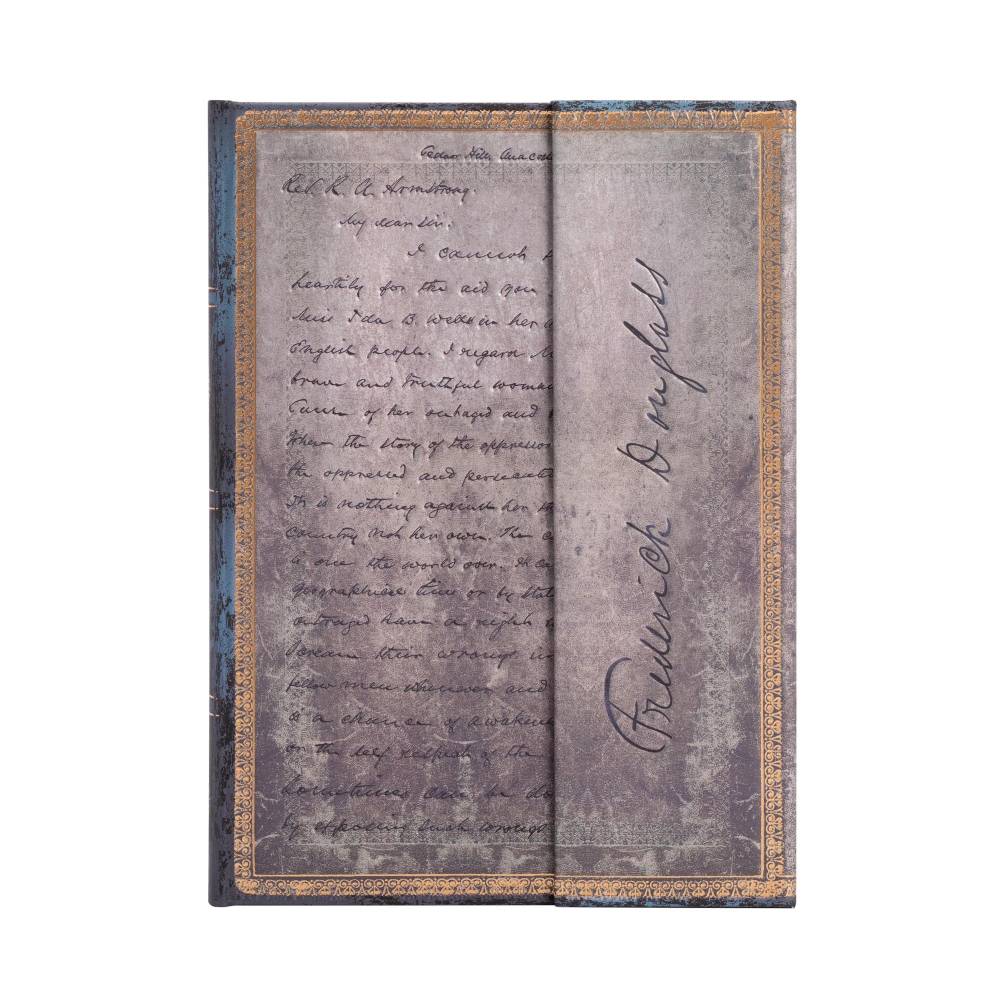 Cedar Hill Anacos
Rev. R. A. Armstrong.
My dear Sir.
I cannot
heartily for the aid you
Miss Ida B. Wells in her
English people. I regard
brave and truthful woman
Cause of her outraged and
When the story of the oppressor
the oppressed and persecuted
It is nothing against her
country not her own. The
is one the world over. It
geographical line or by
outraged have a right
scream their wrongs in
fellow men whenever and
is a chance of awaken
on the self respect of the
Sometimes can be do
by opposing such wrongs
Frederick Douglass